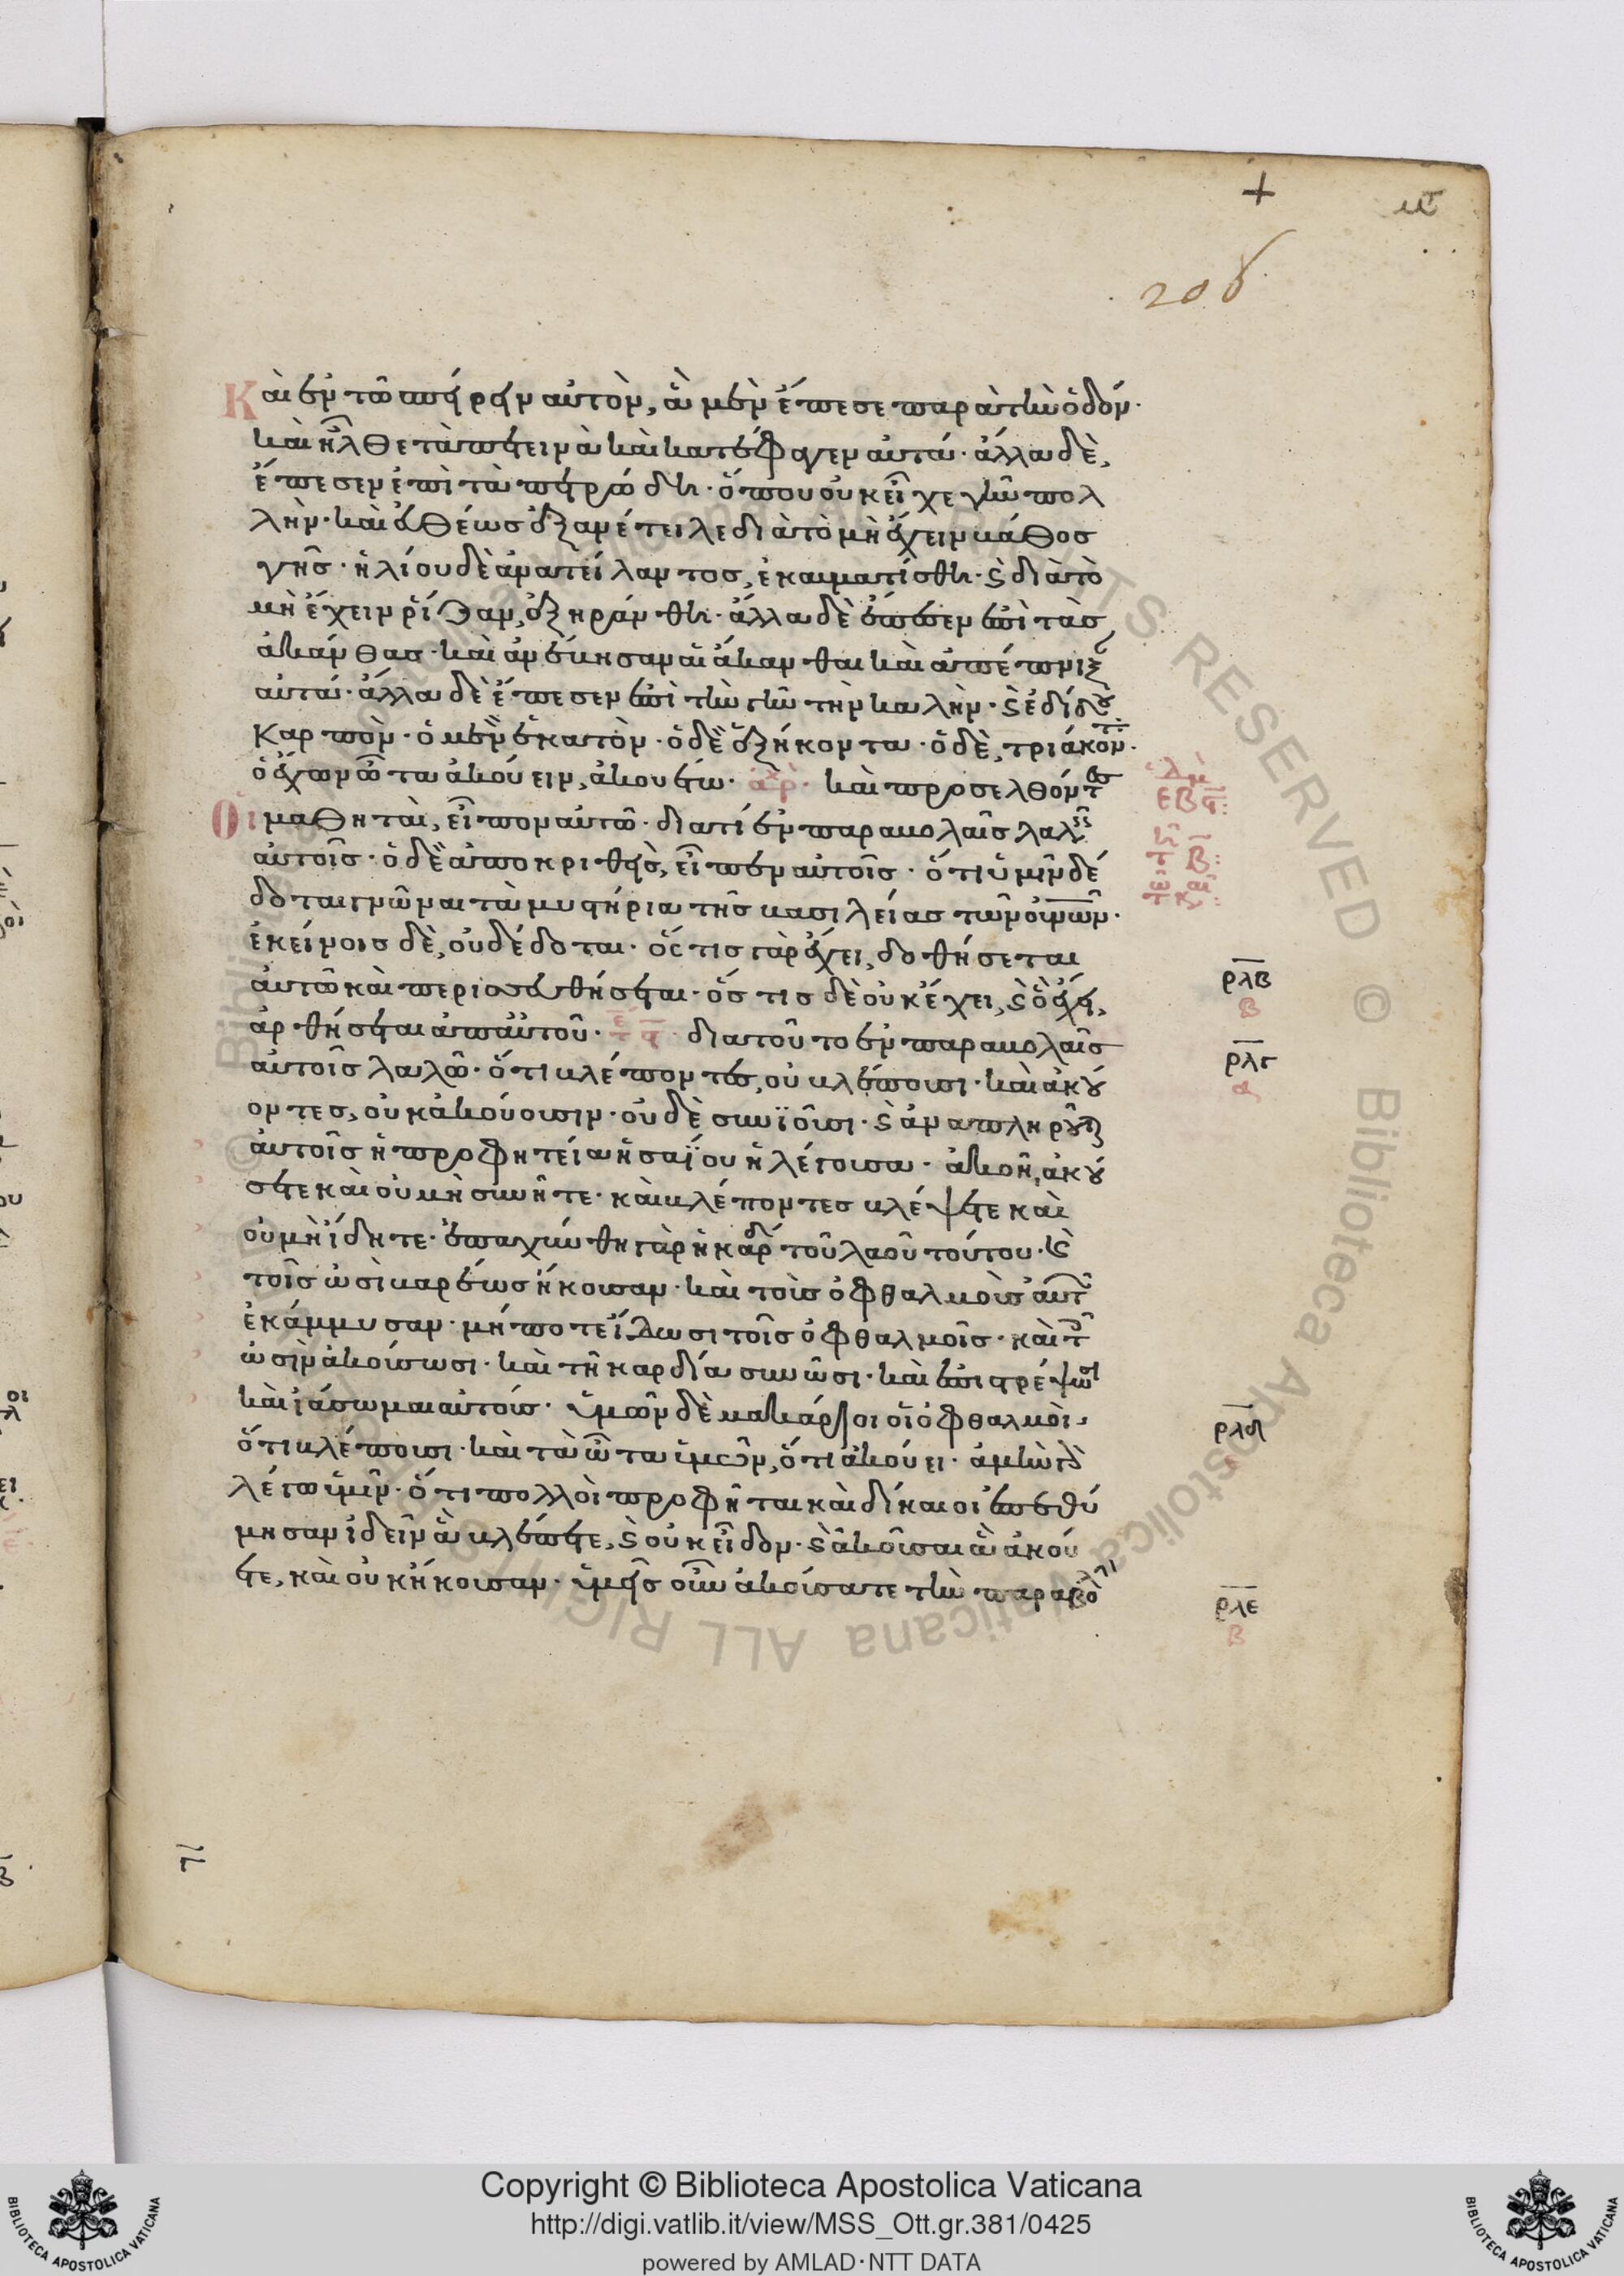 +
206
Καὶ ἐν τῶ σπείρειν αὐτὸν, ἃ μὲν ἔπεσε παρὰ τὴν ὁδόν·
καὶ ἦλθε τὰ πετεινὰ καὶ κατέφαγεν αὐτά· ἄλλα δὲ,
ἔπεσεν ἐπὶ τὰ πετρώδη· ὅπου οὐκ εἶχε γῆν πολ
λὴν· καὶ εὐθέως ἐξανέτειλε διὰ τὸ μὴ ἔχειν βάθος
γῆς· ἡλίου δὲ ἀνατείλαντος, ἐκαυματίσθη· ϛ διὰ τὸ
μὴ ἔχειν ῥίζαν, ἐξηράνθη· ἄλλα δὲ ἔπεσεν ἐπὶ τὰς
ἀκάνθας· καὶ ἀνέβησαν αἱ ἄκανθαι καὶ ἀπέπνιξ
αὐτά· ἄλλα δὲ ἔπεσεν ἐπὶ τὴν γῆν τὴν καλὴν· ϛ ἐδίδου
Καρπὸν· ὁ μὲν ἑκατὸν· ὁ δὲ ἑξήκοντα· ὁ δὲ, τριάκοντ·
ὁ ἔχων ὦτα ἀκούειν, ἀκουέτω· ἀρχ· καὶ προσελθόντες
Οἱ μαθηταὶ, εἶπον αὐτῶ· διατί ἐν παραβολαῖς λαλεῖς
αὐτοῖς· ὁ δὲ ἀποκριθεὶς, εἶπεν αὐτοῖς· ὅτι ὑμῖν δέ
δοται γνῶναι τὰ μυστήρια τῆς βασιλείας τῶν οὐνων·
ἐκείνοις δὲ, οὐ δέδοται· ὅστις γὰρ ἔχει, δοθήσεται
αὐτῶ καὶ περισσευθήσεται· ὅστις δὲ οὐκ ἔχει, ϛ ὃ ἔχει,
ἀρθήσεται ἀπ' αὐτοῦ· διατοῦτο ἐν παραβολαῖς
αὐτοῖς λαλῶ· ὅτι βλέποντες, οὐ βλέπουσι· καὶ ἀκού
οντες, οὐκ ἀκούουσιν· οὐδὲ συνϊοῦσι· ϛ ἀναπληροῦται
αὐτοῖς ἡ προφητεία ἡσαΐου ἡ λέγουσα· ἀκοῆ, ἀκού
σετε καὶ οὐ μὴ συνῆτε· καὶ βλέποντες βλέψετε καὶ
οὐ μὴ ἴδητε· ἐπαχύνθη γὰρ ἡ καρδ τοῦ λαοῦ τούτου· ϗ
τοῖς ὠσὶ βαρέως ἤκουσαν· καὶ τοὺς ὀφθαλμοὺς αὐτῶν
ἐκάμμυσαν· μήποτε ἴδωσι τοῖς ὀφθαλμοῖς· καὶ τοῖς
ὠσὶν ἀκούσωσι· καὶ τῆ καρδία συνῶσι· καὶ ἐπιστρέψωσι
καὶ ἰάσωμαι αὐτούς· ὑμῶν δὲ μακάριοι οἱ ὀφθαλμοὶ.
ὅτι βλέπουσι· καὶ τὰ ὦτα ὑμῶν, ὅτι ἀκούει· ἀμὴν γὰρ
λέγω ὑμῖν· ὅτι πολλοὶ προφῆται καὶ δίκαιοι ἐπεθύ
μησαν ἰδεῖν ἃ βλέπετε, ϛ οὐκ εἶδον· ϛ ἀκοῦσαι ἃ ἀκού
ετε, καὶ οὐκ ἤκουσαν· ὑμεῖς οὖν ἀκούσατε τὴν παραβολὴ
ρλβ
β
ρλγ
α
ρλδ
ρλε
β
Copyright © Biblioteca Apostolica Vaticana
http://digi.vatlib.it/view/MSS_Ott.gr.381/0425
powered by AMLAD·NTT DATA
BIBLIOTECA APOSTOLICA VATICANA
BIBLIOTECA APOSTOLICA VATICANA